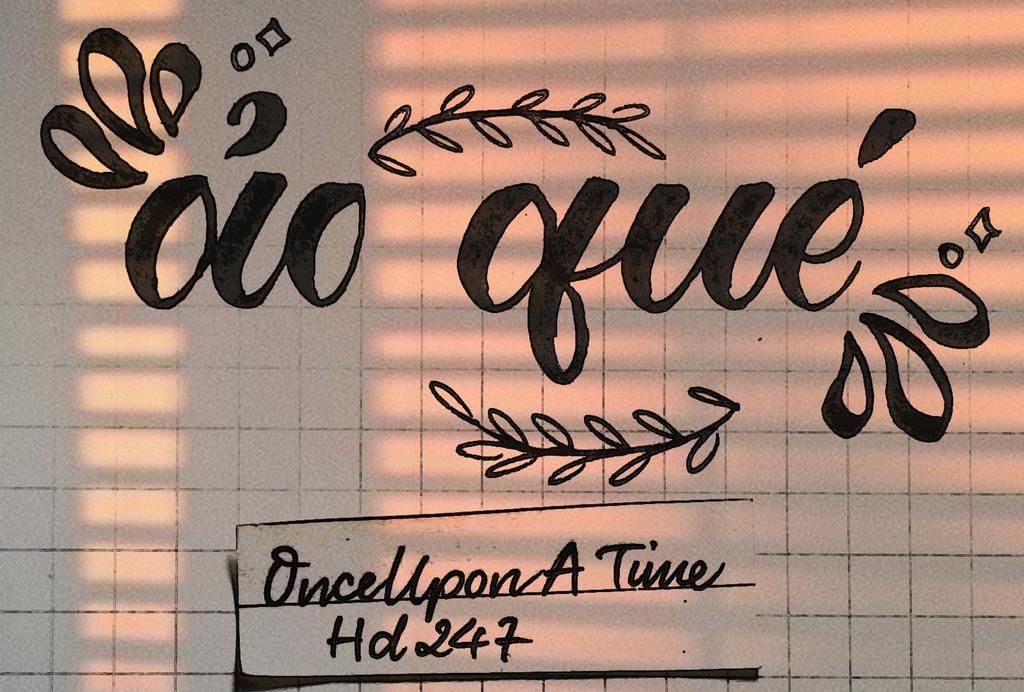 ảo qué
OnceUpon A Time
Hd 247